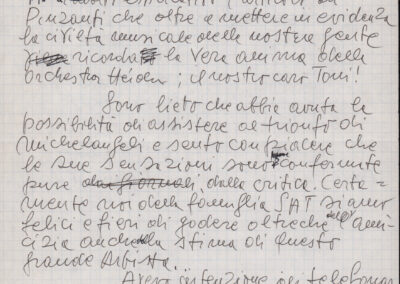 Pinzauti che oltre a mettere in evidenza
la civiltà musicale della nostra gente
ricorda la vera anima della
orchestra Haiden ; il nostro caro Toni!
Sono lieto che abbia avuta la
possibilità di assistere al trionfo di
Michelangeli e sento con piacere che
le sue sensazioni sono confermate
pure dalla critica. Certa=
mente noi della famiglia SAT siamo
felici e fieri di godere oltreché dell'ami=
cizia anche la stima di questo
grande Artista...
Avevo intenzione di telefonar